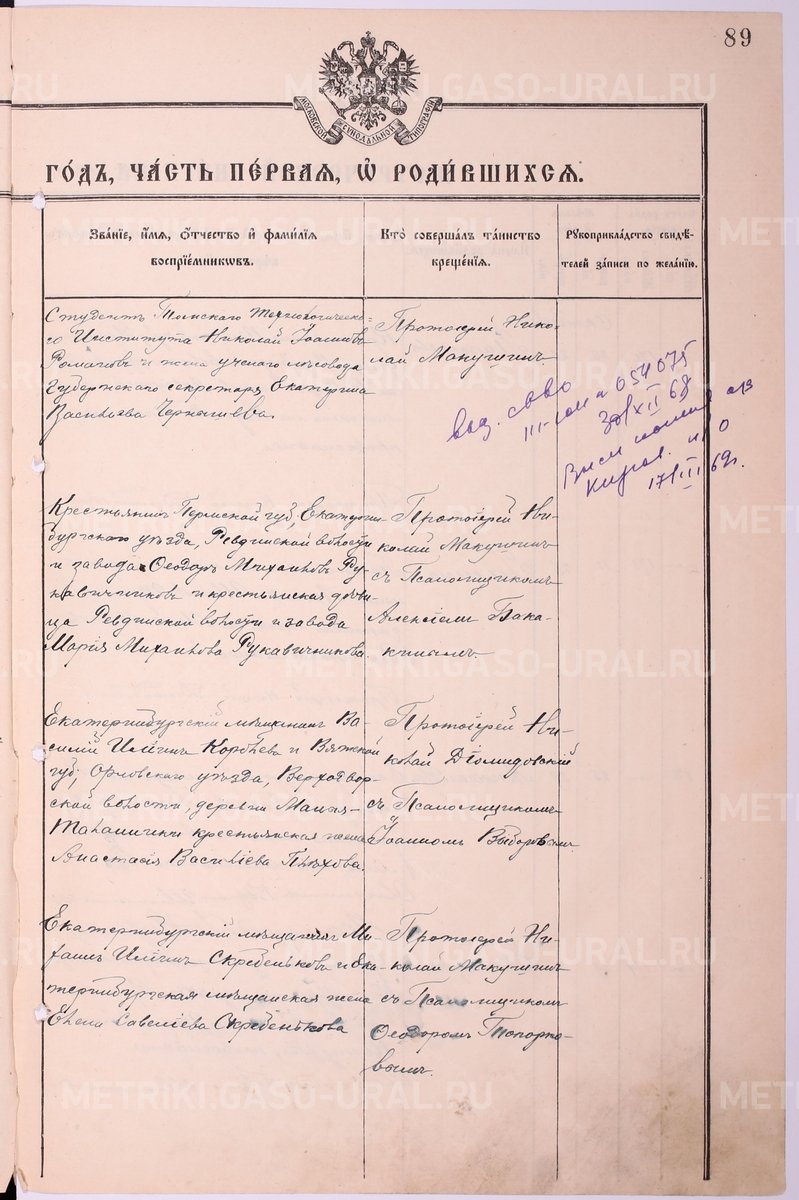 89
МОСКОВСКОЙ СѴНОДАЛЬНОЙ ТИПОГРАФІИ
ГО́ДЪ, ЧА́СТЬ ПЕ́РВАЯ, Ѡ҆ РОДИ́ВШИХСЯ.
Зва́нїе, и҆́мя, ѻ҆́тчество и҆ фами́лїя
воспрїе́мникѡвъ.
Кто̀ соверша́лъ та́инство
креще́нїя.
Рꙋкоприкла́дство свидѣ́-
телей за́писи по жела́нїю.
Студентъ Томскаго Технологическа-
го Института Николай Іоанновъ
Романовъ и жена ученаго лѣсовода
Губернскаго секретаря Екатерина
Васильева
Протоіерей Нико-
лай Макушинъ
выд. св-во
III-ЮИ № 054075
30/XII 68
17/III 69г.
Крестьянинъ Пермской губ., Екатерин-
бургскаго уѣзда, Ревдинской волости
и завода Ѳеодоръ Михаиловъ Ру-
кавичниковъ и крестьянская дѣви-
ца Ревдинской волости и завода
Марія Михаилова Рукавичникова.
Протоіерей Ни-
колай Макушинъ
съ Псаломщикомъ
Алексіемъ Бака-
кинымъ
Екатеринбургскій мѣщанинъ Ва-
силій Иліинъ Коробьева и Вятской
губ., Орловскаго уѣзда, Верходвор-
ской волости, деревни
крестьянская жена
Анастасія Василіева Пѣтухова.
Протоіерей Ни-
колай Діомидовскій
съ Псаломщикомъ
Іоанномъ Выборовымъ
Екатеринбургскій мѣщанинъ Ми-
хаилъ Иліинъ Скребеньковъ и Ека-
теринбургская мѣщанская жена
Елена Савеліева Скребенькова
Протоіерей Ни-
колай Макушинъ
съ Псаломщикомъ
Ѳеодоромъ Топорко-
вымъ.
METRIKI.GASO-URAL.RU